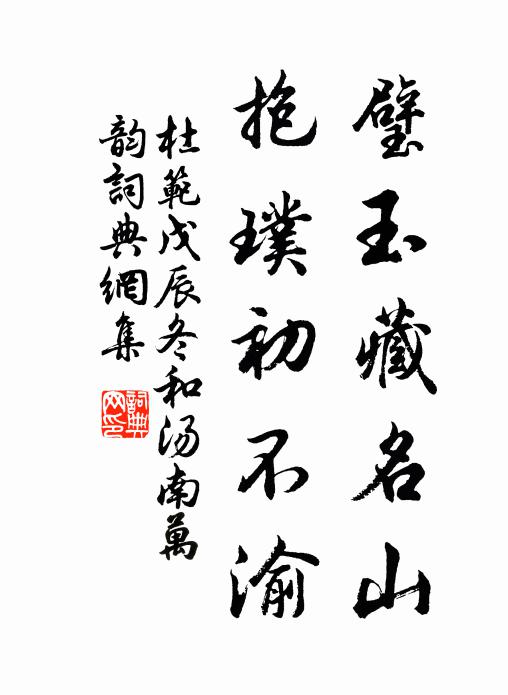 璧玉藏名山
抱璞初不渝
杜範戊辰冬和湯南萬
韵詞典網集
詞典网印